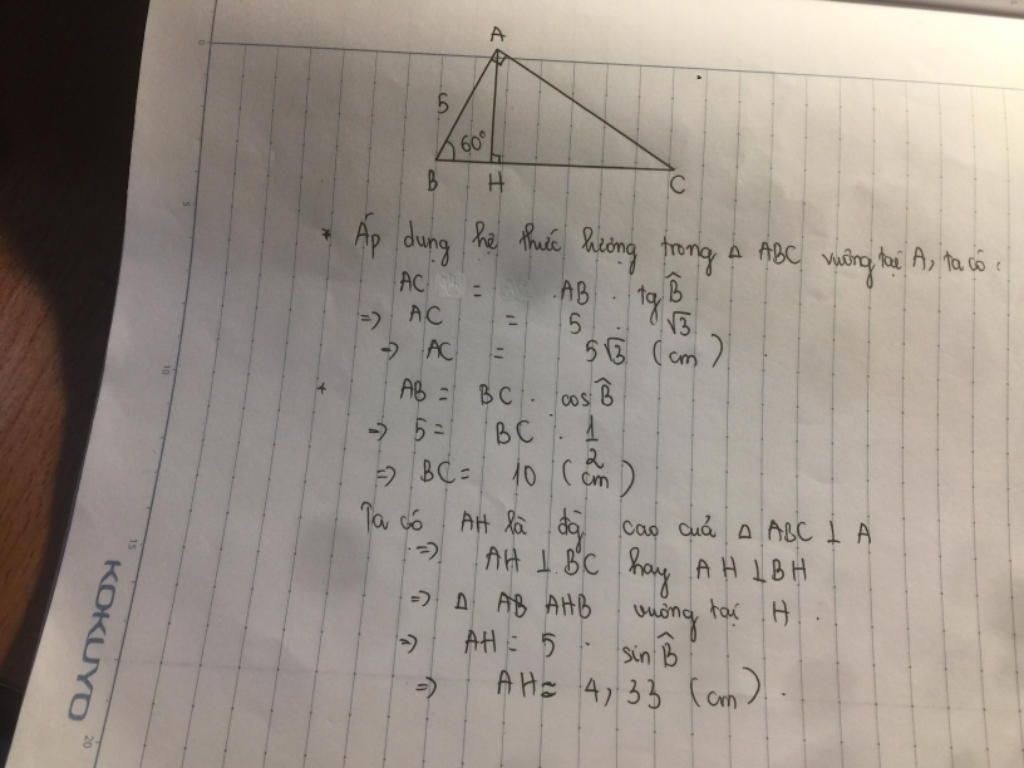 A
5
60°
B H C
* Áp dụng hệ thức lượng trong Δ ABC vuông tại A, ta có :
AC = . AB . tg B̂
=> AC = 5 . √3
-> AC = 5√3 (cm)
+ AB = BC . cos B̂
-> 5 = BC . 1/2
=> BC = 10 (cm)
Ta có AH là đg` cao cuả Δ ABC ⊥ A
=> AH ⊥ BC hay AH ⊥ BH
=> Δ AB AHB vuông tại H .
=> AH = 5 . sin B̂
=> AH ≈ 4,33 (cm) .
0
5
10
15
20
KOKUYO